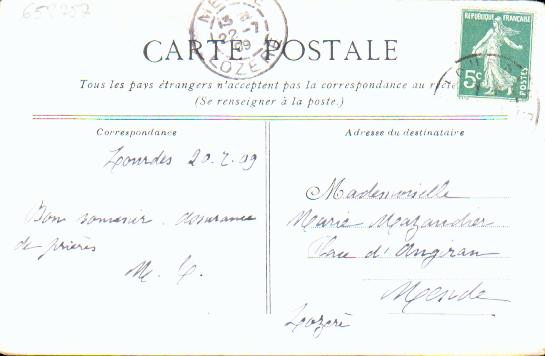 658757
MENDE
13 15
22 -7
09
LOZERE
REPUBLIQUE FRANÇAISE
5c
POSTES
CARTE POSTALE
Tous les pays étrangers n'acceptent pas la correspondance au recto
(Se renseigner à la poste.)
Correspondance
Adresse du destinataire
Lourdes 20.7.09
Bon souvenir. assurance
de prières
M. C.
Mademoiselle
Marie Mazaudier
Place d'Angiran
Mende
Lozère